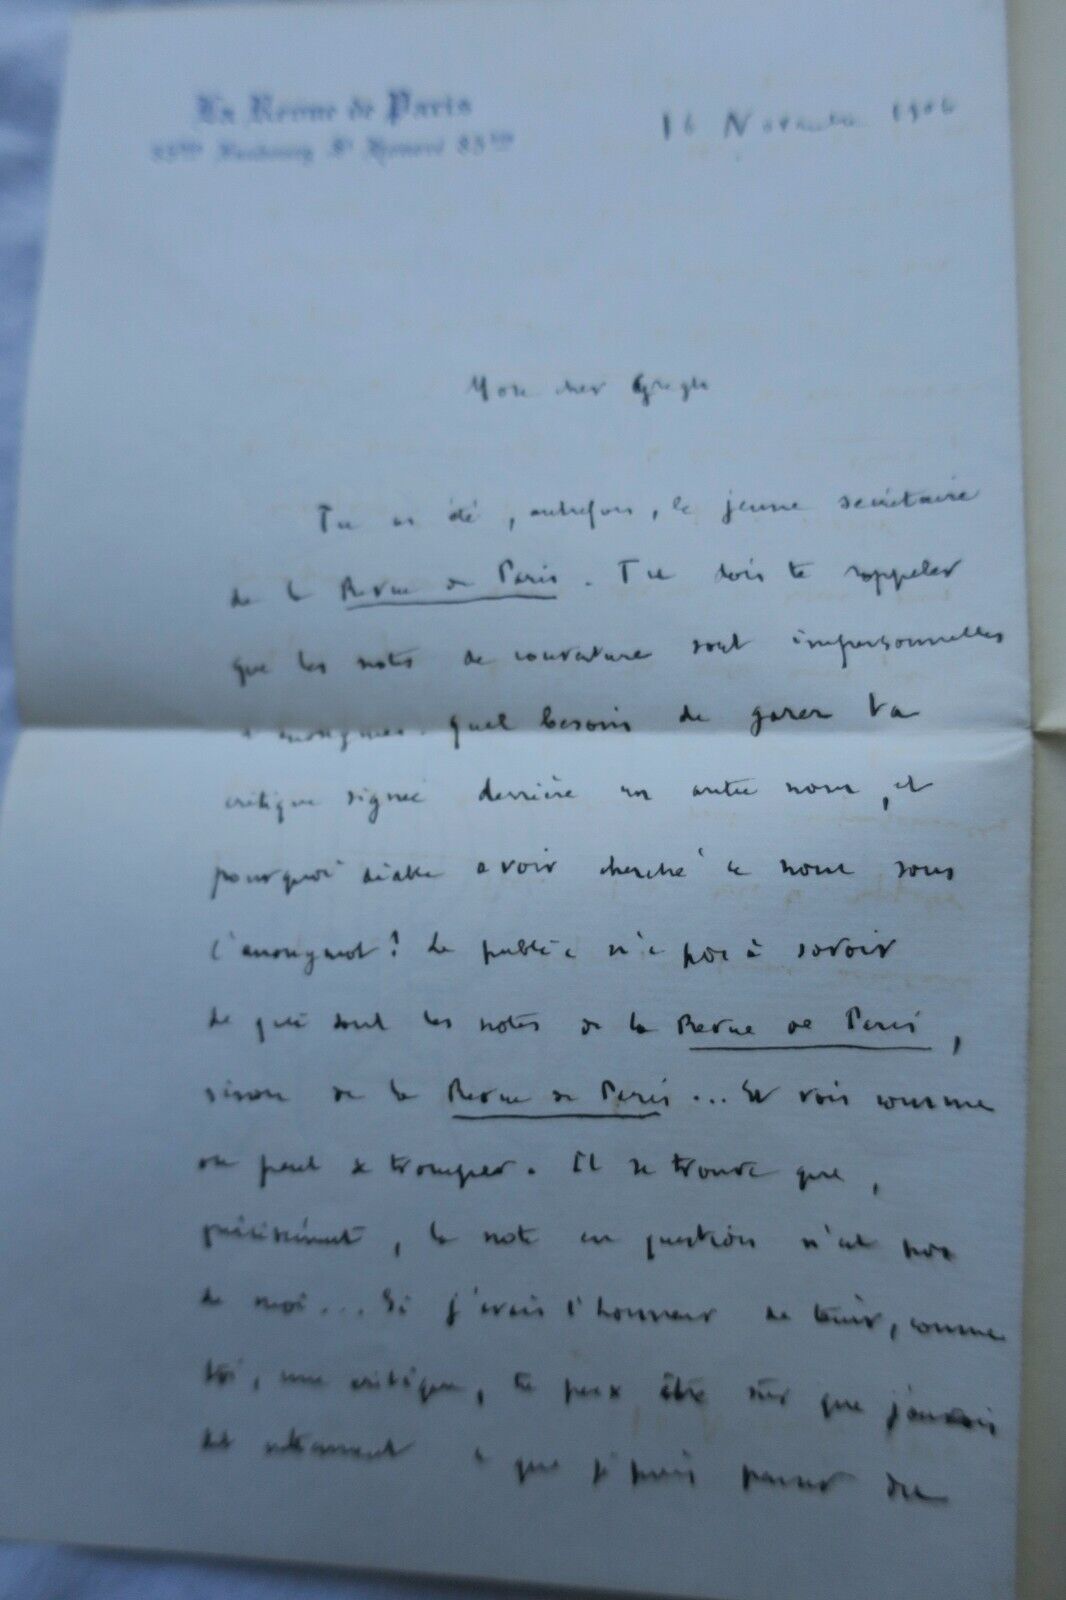 La Revue de Paris
85bis Faubourg St Honoré 85bis
16 Novembre 1904
Mon cher Gregh
Tu as été, autrefois, le jeune secrétaire
de la Revue de Paris. Tu dois te rappeler
que les notes de couverture sont impersonnelles
anonymes. Quel besoin de garer ta
critique signée derrière un autre nom, et
pourquoi diable avoir cherché ce nom sous
l'anonymat? Le public n'a pas à savoir
de qui sont les notes de la Revue de Paris,
sinon de la Revue de Paris... Et vois comme
on peut se tromper. Il se trouve que,
précisément, la note en question n'est pas
de moi... Si j'avais l'honneur de tenir, comme
toi, une critique, tu peux être sûr que j'aurais
dit nettement ce que je puis penser du